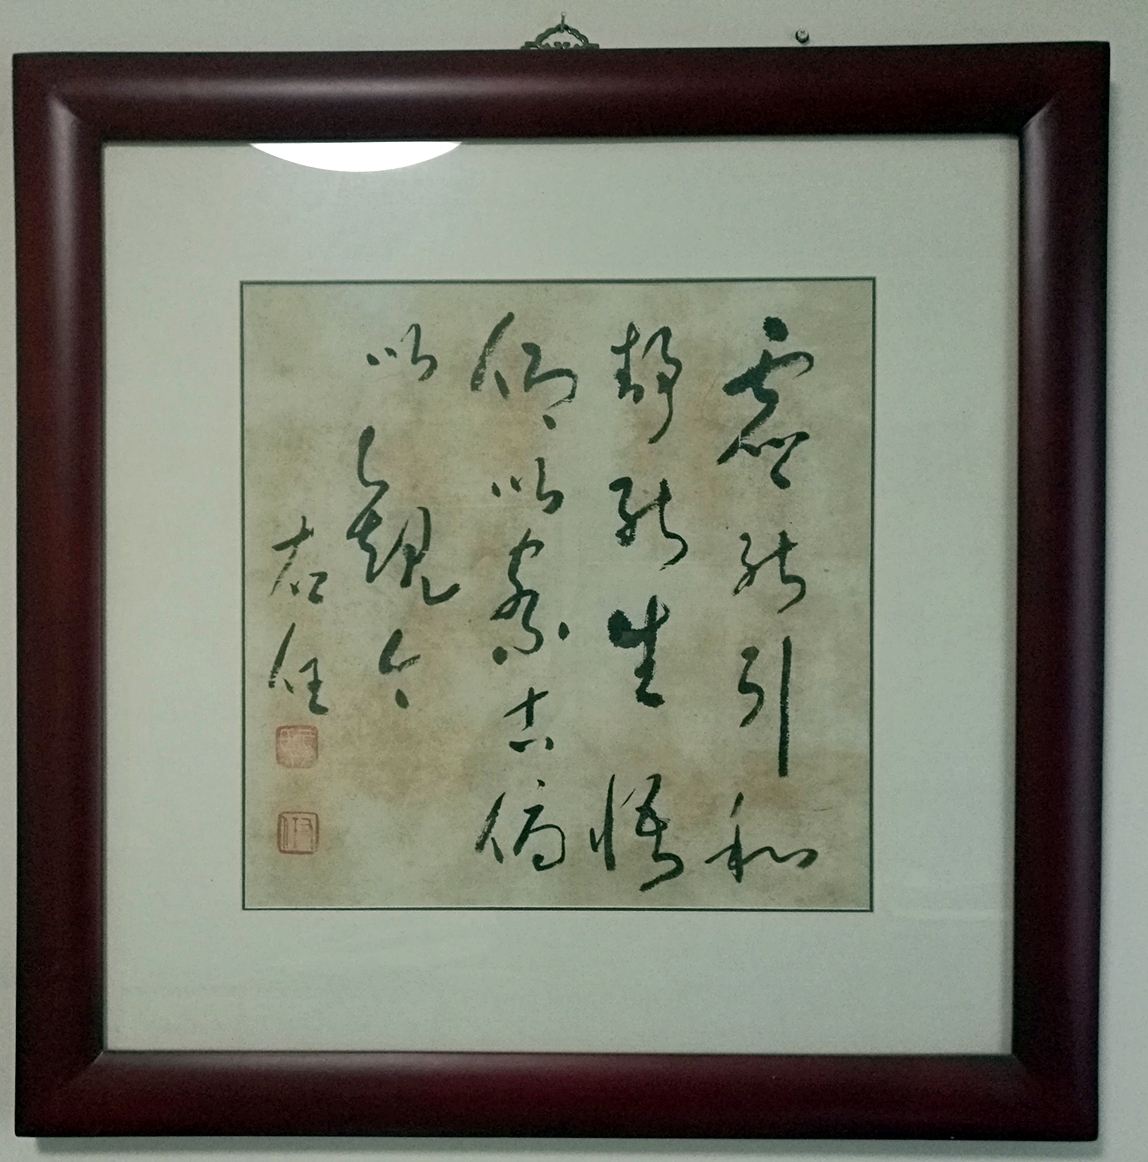 虛能引和
靜能生悟
仰以察古俯
以觀今
右任